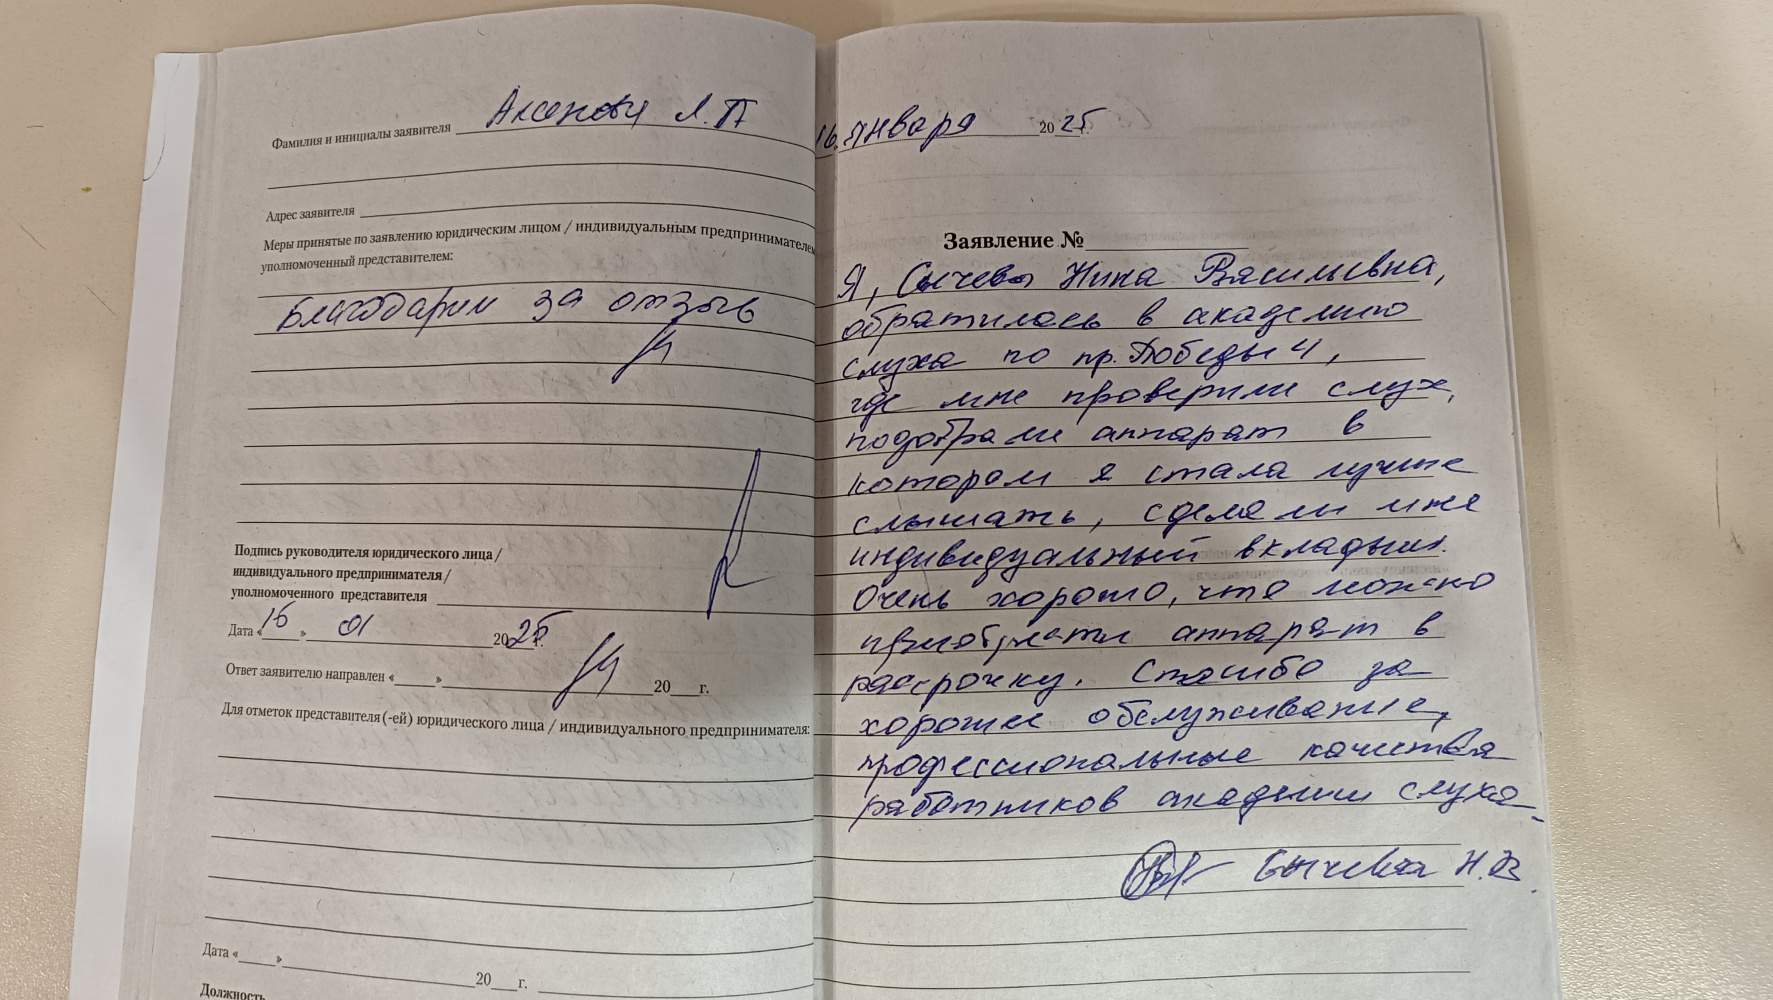 Фамилия и инициалы заявителя Аксенов Л.П
Адрес заявителя
Меры принятые по заявлению юридическим лицом / индивидуальным предпринимателем
уполномоченный представителем:
Благодарим за отзыв
Подпись руководителя юридического лица /
индивидуального предпринимателя /
уполномоченного представителя
Дата «16» 01 2025г.
Ответ заявителю направлен «___» 20___г.
Для отметок представителя (-ей) юридического лица / индивидуального предпринимателя:
Дата «___» 20___г.
Должность
16. января 2025г.
Заявление №
Я, Сычева Нина Васильевна,
обратилась в академию
слуха по пр. Победы 4,
где мне проверили слух,
подобрали аппарат в
котором я стала лучше
слышать, сделали мне
индивидуальный вкладыш.
Очень хорошо, что можно
приобрести аппарат в
рассрочку. Спасибо за
хорошее обслуживание,
профессиональные качества
работников академии слуха.
Сычева Н.В.